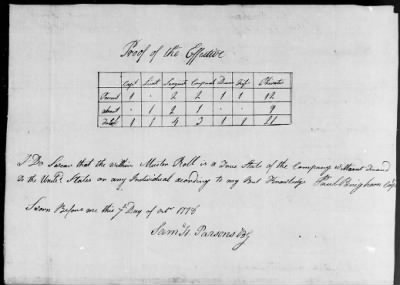 Proof of the Effective
Capt Lieut Serjants Corporal Drum Fife Privates
Present 1 . 2 2 1 1 12
absent . 1 2 1 . . 9
Total 1 1 4 3 1 1 21
I Do Swear that the within Muster Roll is a True State of the Company without Fraud
to the Unitd. States or any Individual according to my Best Knowledge Paul Bingham Capt
Sworn Before me this 7 Day of Octr 1778
Saml H Parsons BG